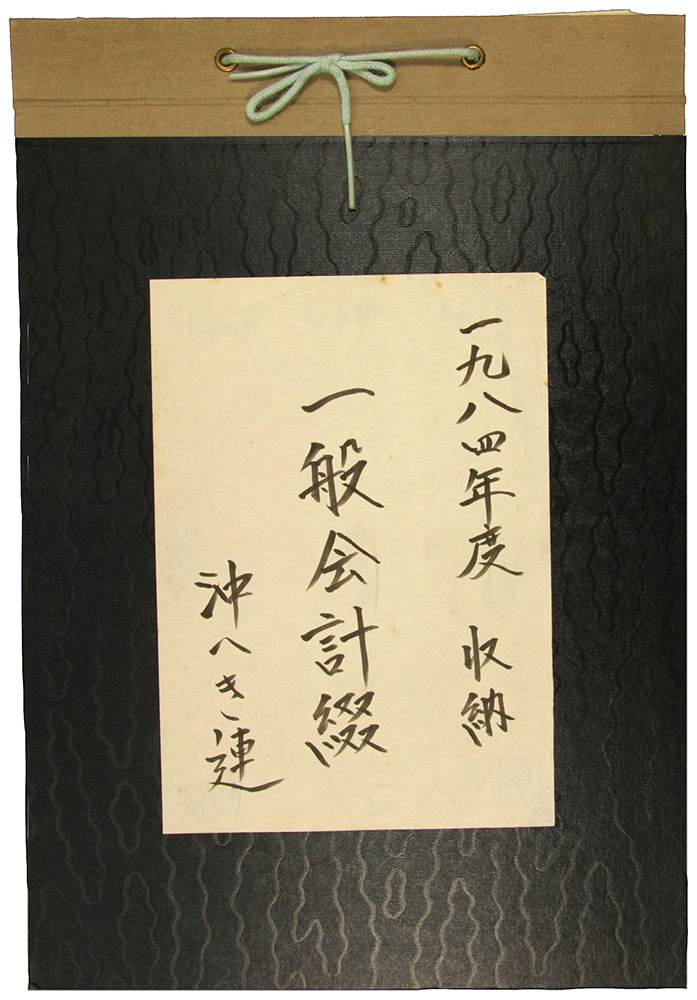 一九八四年度 収納
一般会計綴
沖へき連